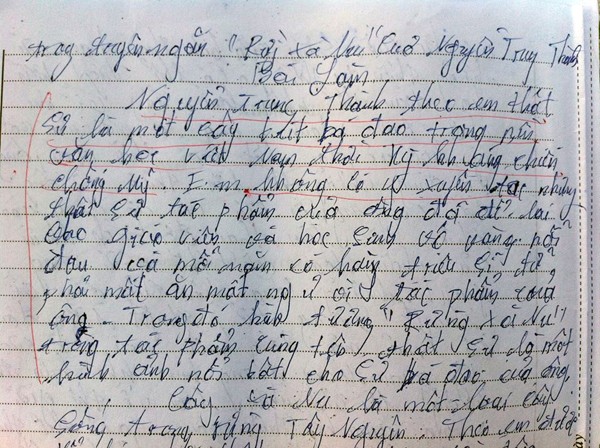 trong truyện ngắn "Rừng xà Nu" của Nguyễn Trung Thành
Bài Làm
Nguyễn Trung Thành theo em thật
sự là một cây bút bá đạo trong nền
văn học việt Nam thời kỳ kháng chiến
chống Mỹ. Em không có ý xuyên tạc nhưng
thật sự tác phẩm của ông đã để lại
cho giáo viên và học sinh vô vàng nỗi
đau cả mỗi năm có hàng triệu sĩ tử
phải mất ăn mất ngủ vì tác phẩm của
ông. Trong đó hình tượng "Rừng xà Nu"
trong tác phẩm cùng tên thật sự là một
hình ảnh nổi bật cho sự bá đạo của ông.
Cây xà Nu là một loại cây
sống trong rừng Tây Nguyên Theo em được